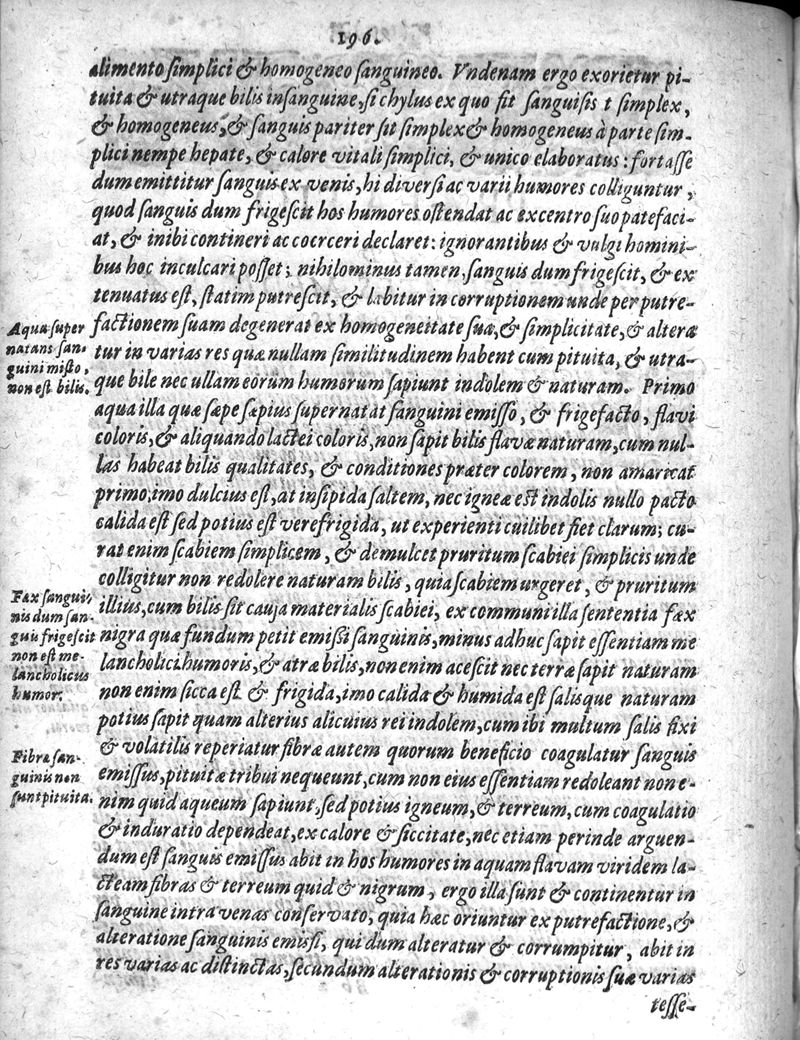 196.
alimento simplici & homogeneo sanguineo. Vndenam ergo exorietur pi-
tuita & utraque bilis in sanguine, si chylus ex quo fit sanguis is t simplex,
& homogeneus, & sanguis pariter sit simplex & homogeneus à parte sim-
plici nempe hepate, & calore vitali simplici, & unico elaboratus: fortasse
dum emittitur sanguis ex venis, hi diversi ac varii humores colliguntur,
quod sanguis dum frigescit hos humores ostendat ac ex centro suo patefaci-
at, & inibi contineri ac coerceri declaret: ignorantibus & vulgi homini-
bus hoc inculcari posset; nihilominus tamen, sanguis dum frigescit, & ex
tenuatus est, statim putrescit, & labitur in corruptionem unde per putre-
factionem suam degenerat ex homogeneitate sua, & simplicitate, & alteræ
tur in varias res quæ nullam similitudinem habent cum pituita, & utra-
que bile nec ullam eorum humorum sapiunt indolem & naturam. Primo
aqua illa quæ sæpe sæpius supernatat sanguini emisso, & frigefacto, flavi
coloris, & aliquando lactei coloris, non sapit bilis flavæ naturam, cum nul-
las habeat bilis qualitates, & conditiones præter colorem, non amaricat
primo, imo dulcius est, at insipida saltem, nec igneæ est indolis nullo pacto
calida est sed potius est vere frigida, ut experienti cuilibet fiet clarum; cu-
rat enim scabiem simplicem, & demulcet pruritum scabiei simplicis unde
colligitur non redolere naturam bilis, quia scabiem urgeret, & pruritum
illius, cum bilis sit causa materialis scabiei, ex communi illa sententia fæx
nigra quæ fundum petit emissi sanguinis, minus adhuc sapit essentiam me
lancholici humoris, & atræ bilis, non enim acescit nec terræ sapit naturam
non enim sicca est & frigida, imo calida & humida est salisque naturam
potius sapit quam alterius alicuius rei indolem, cum ibi multum salis fixi
& volatilis reperiatur fibræ autem quorum beneficio coagulatur sanguis
emissus, pituitæ tribui nequeunt, cum non eius essentiam redoleant non e-
nim quid aqueum sapiunt, sed potius igneum, & terreum, cum coagulatio
& induratio dependeat, ex calore & siccitate, nec etiam perinde arguen-
dum est sanguis emissus abit in hos humores in aquam flavam viridem la-
cteam fibras & terreum quid & nigrum, ergo illa sunt & continentur in
sanguine intra venas conservato, quia hæc oriuntur ex putrefactione, &
alteratione sanguinis emissi, qui dum alteratur & corrumpitur, abit in
res varias ac distinctas, secundum alterationis & corruptionis suæ varias
tesse-
Aqua super
natans san-
guini misto,
non est bilis.
Fæx sangui-
nis dum san-
guis frigescit
non est me-
lancholicus
humor.
Fibra san-
guinis non
sunt pituita.